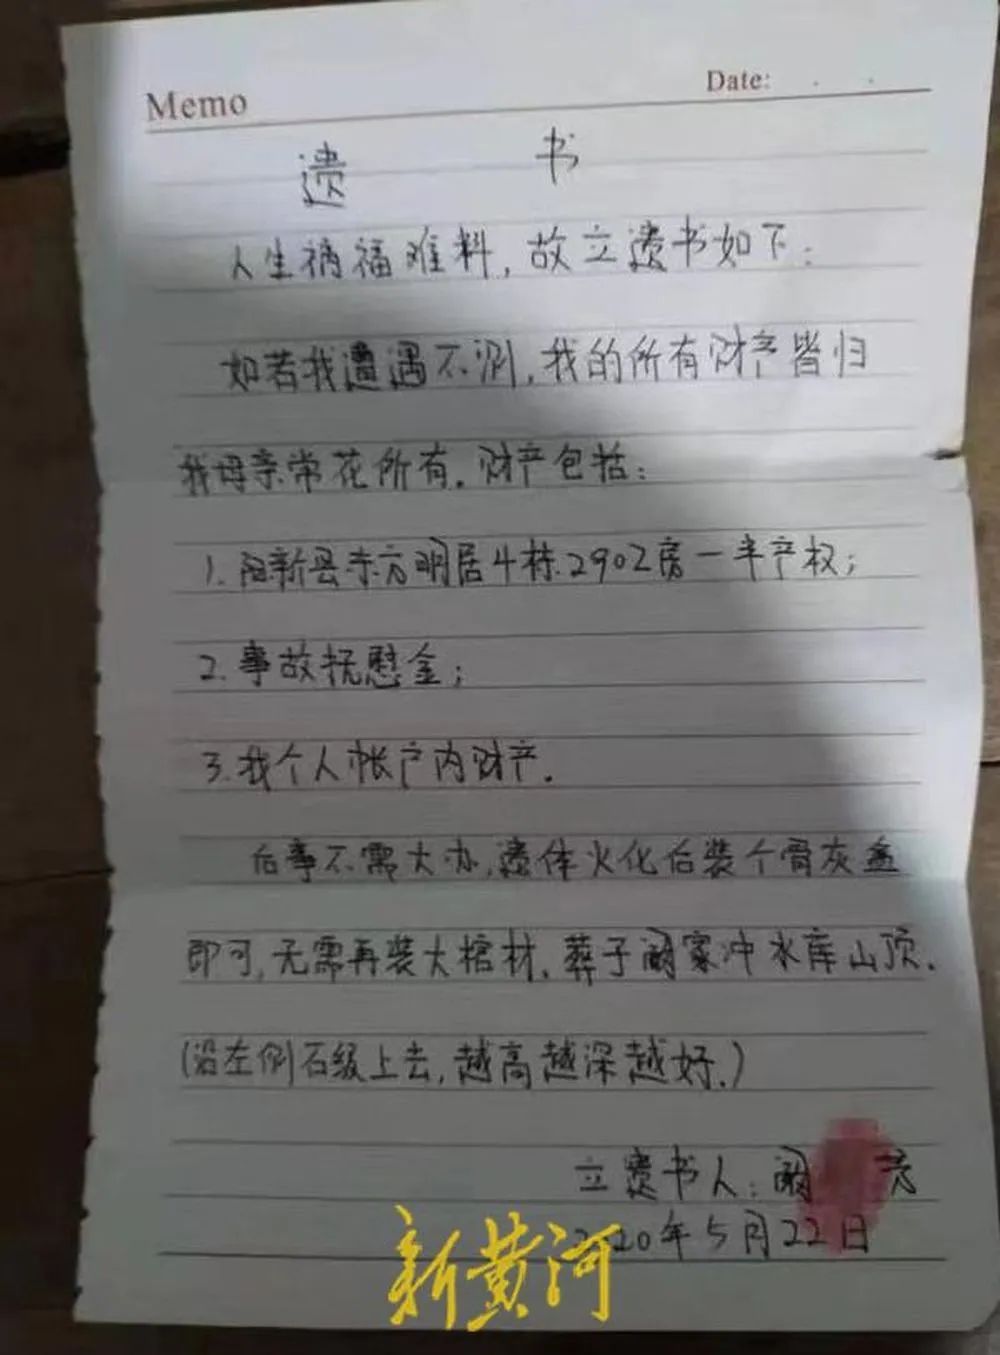 Memo
Date:
遗 书
人生祸福难料,故立遗书如下:
如若我遭遇不测,我的所有财产皆归
我母亲常花所有。财产包括:
1.阳新县东方明居4栋2902房一半产权;
2.事故抚慰金;
3.我个人帐户内财产.
后事不需大办,遗体火化后装个骨灰盒
即可,无需再装大棺材.葬于阚家冲水库山顶.
(沿左侧石级上去,越高越深越好.)
立遗书人:阚
2020年5月22日
新黄河